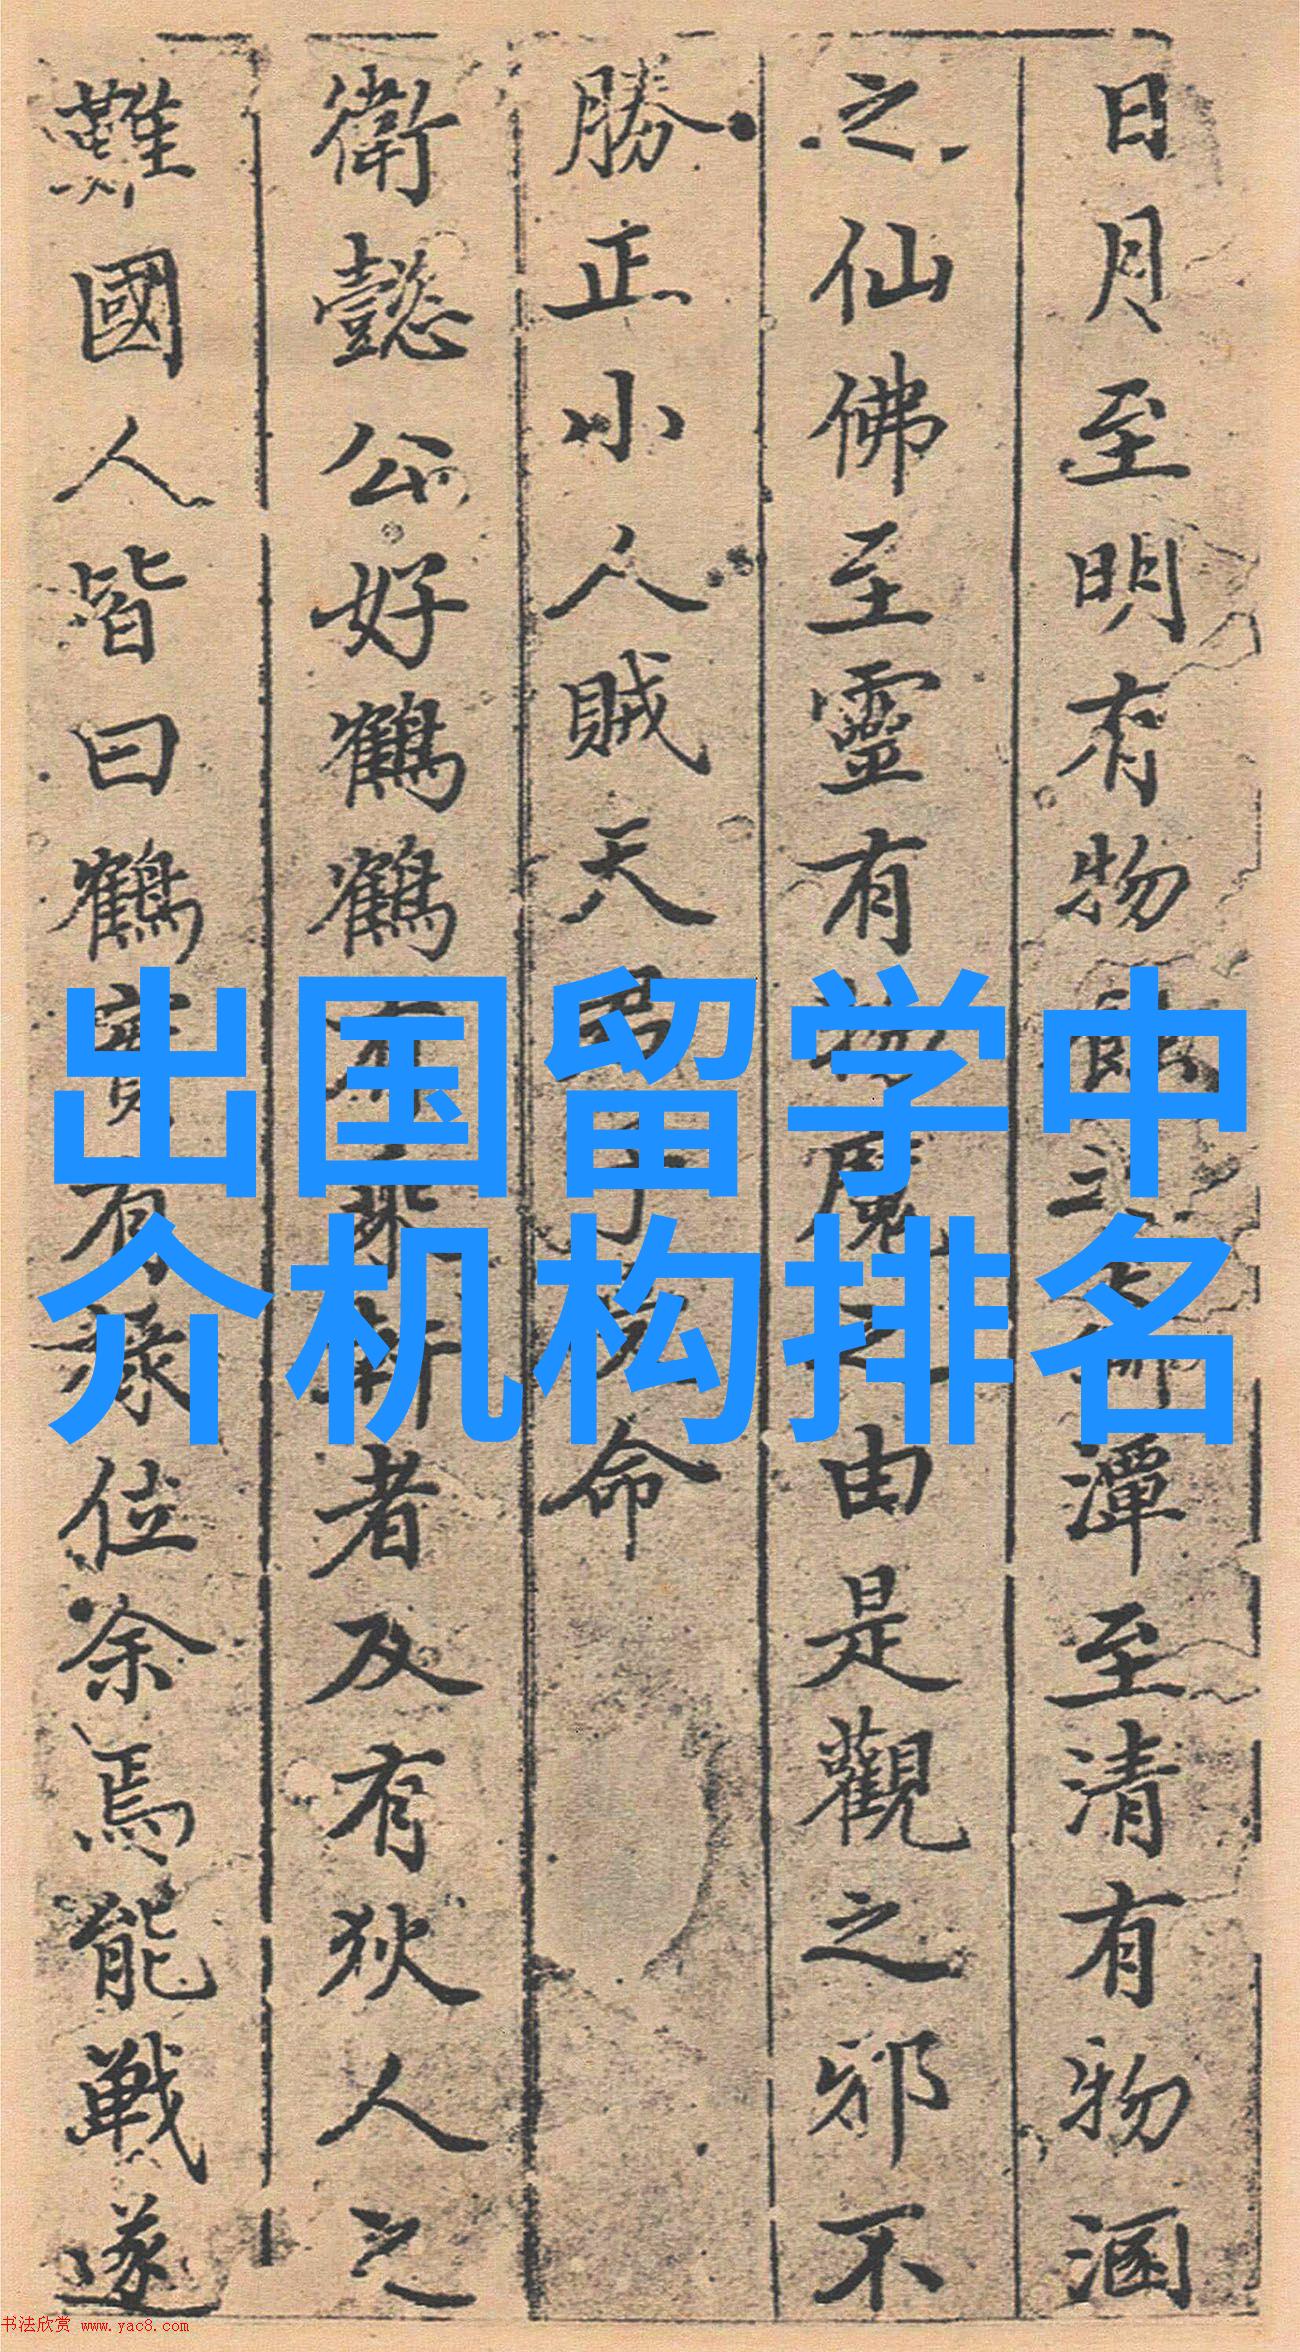 日月至明有物蝕之
潭至清有物涵
之仙佛至靈有物魔之由是觀之邪不
勝正小人賊天
命
衛懿公好鶴鶴有乘軒者及有狄人之
難國人皆曰鶴實有祿位余焉能戰遂
出国留学中
介机构排名
书法欣赏 www.yac8.com